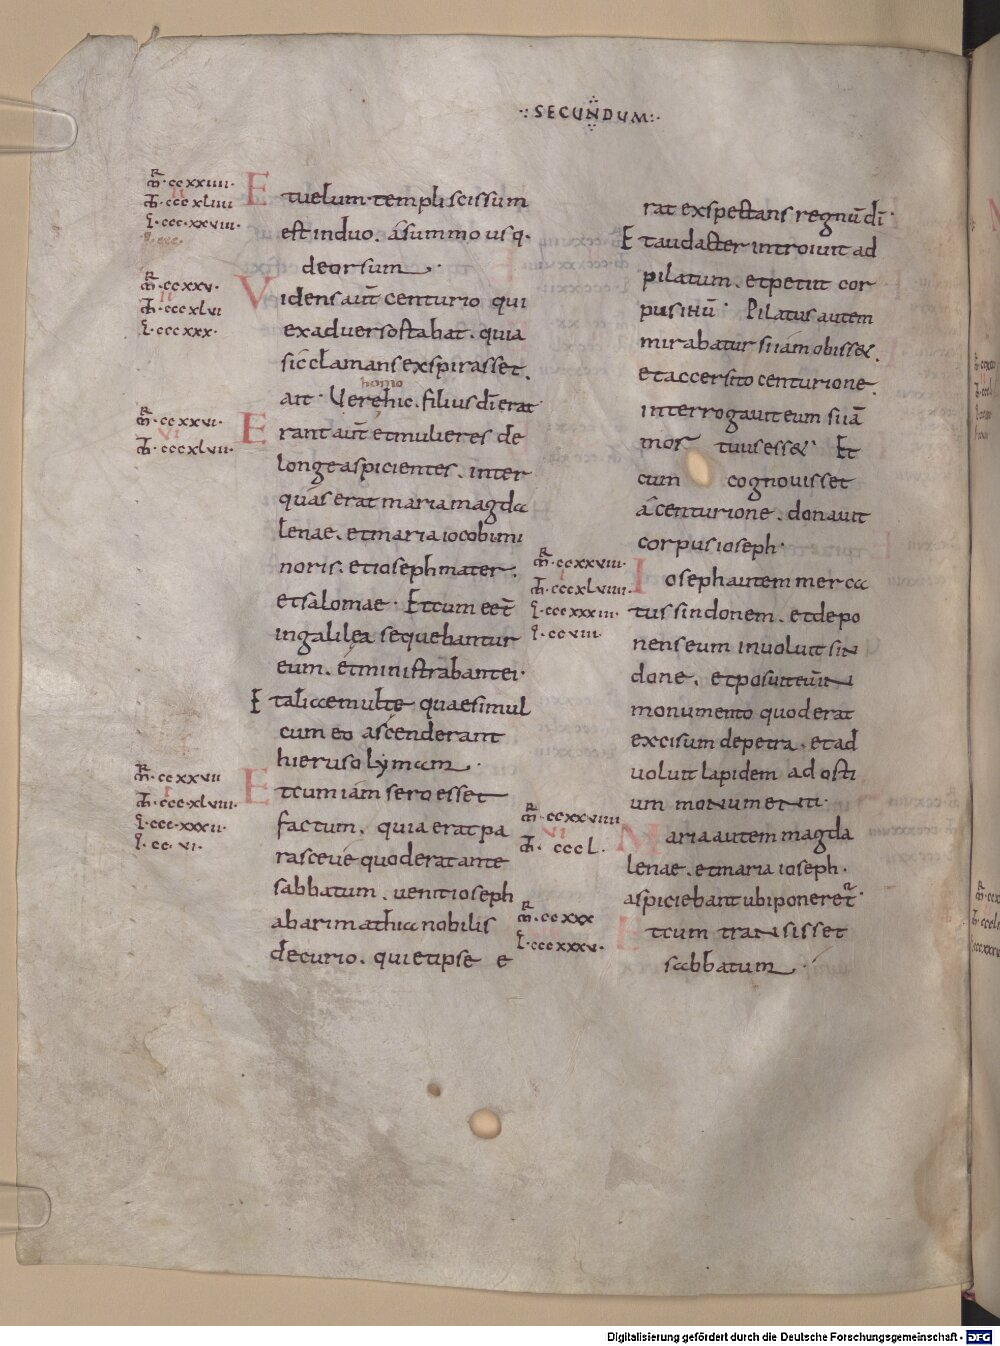 ·:SECUNDUM:·
m̄·ccxxiiii·
m̄t·cccxliiii
l·ccc·xxviii·
Et uelum·templi scissum
est in duo. á summo usq·
deorsum.
m̄·ccxxv·
II
m̄t·cccxlvi
l·cccxxx·
Videns aut̄ centurio qui
ex aduerso stabat. quia
sic clamans exspirasset.
homo
ait· Uere hic. filius dī erat
m̄·ccxxvi·
VI
m̄t·cccxlvii·
Erant aut̄ et mulieres de
longe aspicientes. inter
quas erat maria magda
lenae. et maria iocobimi
noris. et ioseph mater.
et salomae· Et cum eēt̄
in galilea sequebantur
eum. et ministrabant ei·
Et aliae multe quae simul
cum eo ascenderant
hierusolymam.
m̄·ccxxvii
I
m̄t·cccxlviii·
l·cccxxxii·
l·cc·vi·
Et cum iam sero esset
factum. quia erat pa
rasceue quod erat ante
sabbatum. uenit ioseph
ab arimathia nobilis
decurio. qui et ipse e
rat exspectans regnū dī·
Et audacter introiuit ad
pilatum. et petiit cor
pus ihū· Pilatus autem
mirabatur si iam obisset.
et accersito centurione.
interrogauit eum si iā
mortuus esset· Et
cum cognouisset
á centurione. donauit
corpus ioseph·
m̄·ccxxviii·
I
m̄t·cccxlviiii·
l·cccxxxiii·
l·ccviii·
Ioseph autem merca
tus sindonem. et depo
nens eum inuoluit sin
done. et posuit eū in
monumento quod erat
excisum de petra. et ad
uoluit lapidem ad osti
um monumenti·
m̄·ccxxviiii
VI
m̄t· cccL.
Maria autem magda
lenae. et maria ioseph·
aspiciebant ubi poneret·
m̄·ccxxx
l·cccxxxv·
Et cum transisset
sabbatum.
Digitalisierung gefördert durch die Deutsche Forschungsgemeinschaft - DFG